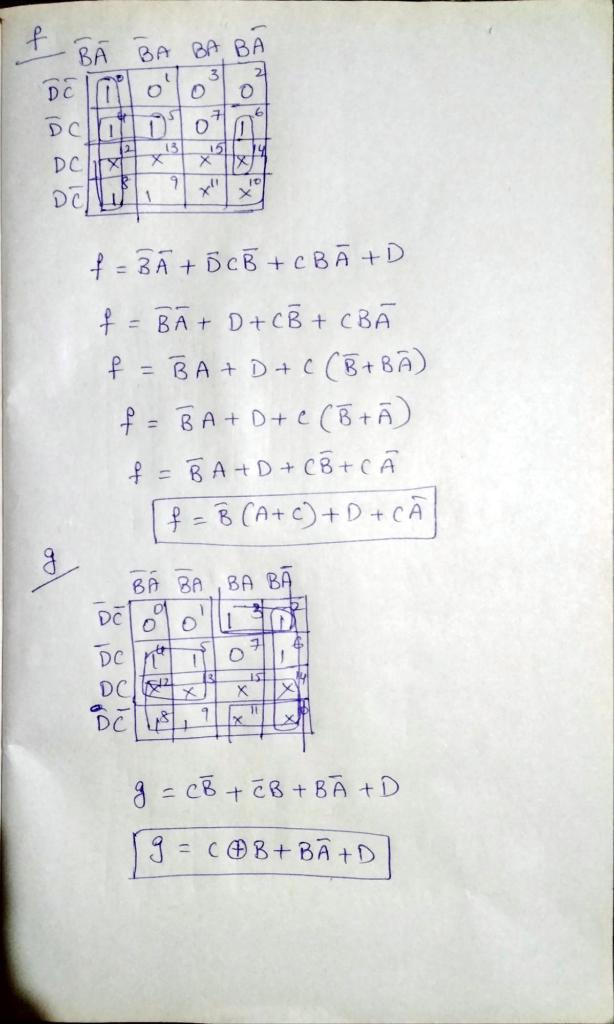 f
B̄Ā B̄A BA BĀ
D̄C̄ 1 0 0 1 0 3 0 2
D̄C 1 4 1 5 0 7 1 6
DC x 12 x 13 x 15 x 14
DC̄ 1 8 1 9 x 11 x 10
f = B̄Ā + D̄CB̄ + CBĀ + D
f = B̄Ā + D + CB̄ + CBĀ
f = B̄A + D + C (B̄ + BĀ)
f = B̄A + D + C (B̄ + Ā)
f = B̄A + D + CB̄ + CĀ
f = B̄ (A + C) + D + CĀ
g
B̄Ā B̄A BA BĀ
D̄C̄ 0 0 0 1 1 3 1 2
D̄C 1 4 1 5 0 7 1 6
DC x 12 x 13 x 15 x 14
DC̄ 1 8 1 9 x 11 x 10
g = CB̄ + C̄B + BĀ + D
g = C ⊕ B + BĀ + D